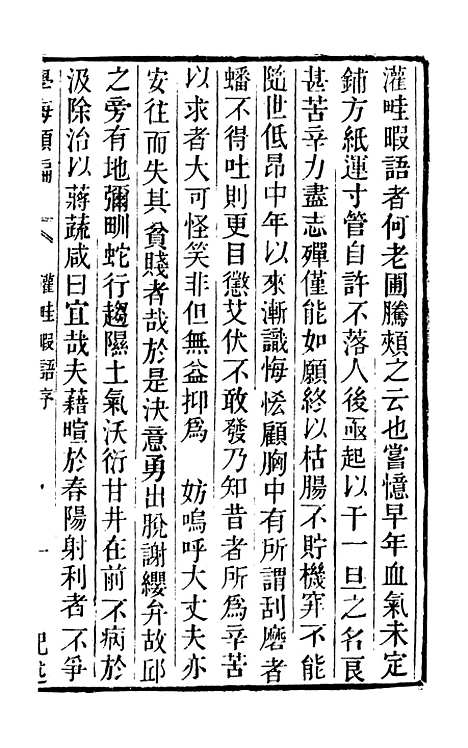 灌畦暇語者何老圃騰頰之云也嘗憶早年血氣未定
鋪方紙運寸管自許不落人後亟起以干一旦之名良
甚苦辛力盡志殫僅能如願終以枯腸不貯機穽不能
隨世低昂中年以來漸識悔恡顧胸中有所謂刮磨者
蟠不得吐則更目懲艾伏不敢發乃知昔者所爲辛苦
以求者大可怪笑非但無益抑爲 妨嗚呼大丈夫亦
安往而失其貧賤者哉於是決意勇出脫謝纓弁故邱
之旁有地彌畎蛇行趨隰土氣沃衍甘井在前不病於
汲除治以蒔蔬咸曰宜哉夫藉暄於春陽射利者不爭
學海類編 灌畦暇語序 一